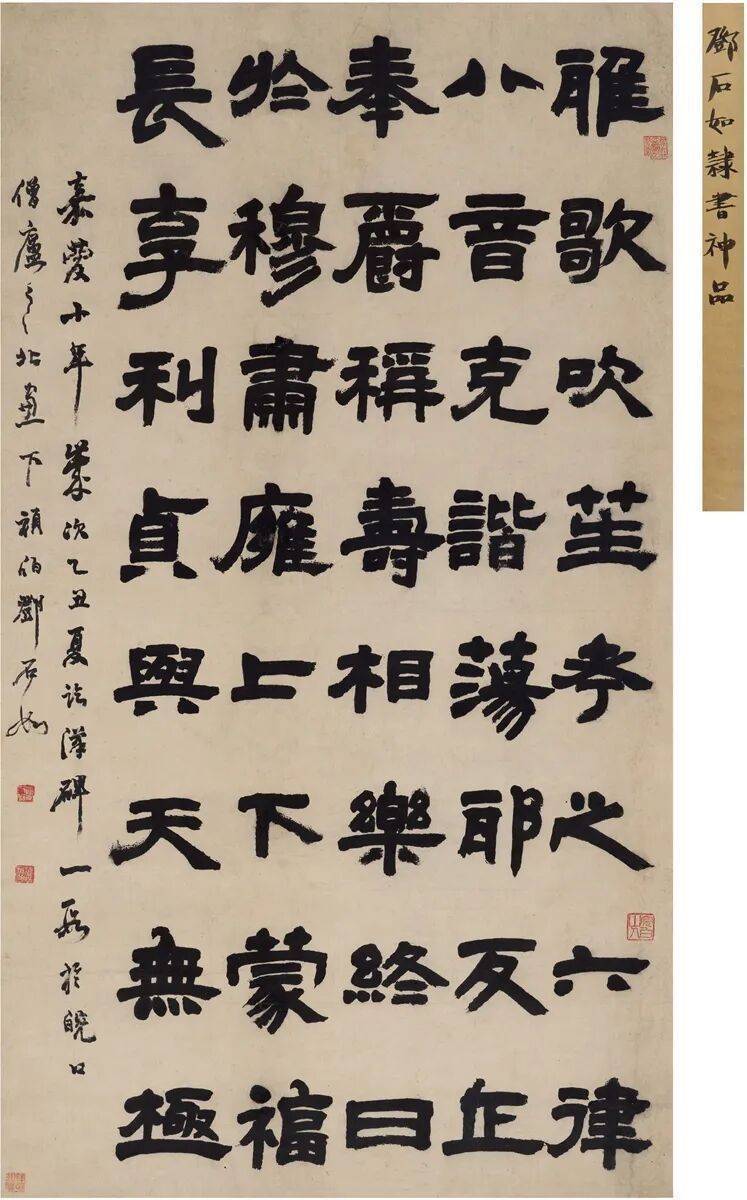 雅歌吹笙考之六律
八音克諧蕩邪反正
奉爵稱壽相樂終日
於穆肅雍上下蒙福
長享利貞與天無極
嘉慶十年歲次乙丑夏臨漢碑一段於皖口
僧廬之北窗下頑伯鄧石如
鄧石如隸書神品